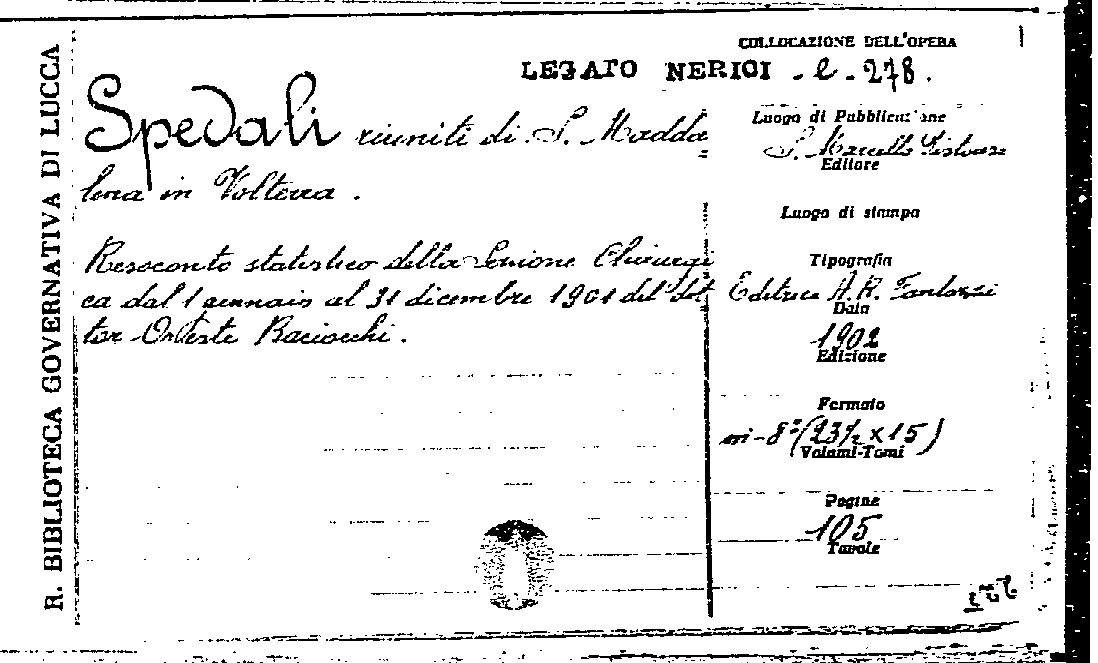 R. BIBLIOTECA GOVERNATIVA DI LUCCA
COLLOCAZIONE DELL'OPERA
LEGATO NERICI - e - 278.
Spedali riuniti di S. Madda=
lena in Volterra.
Resoconto statistico della Sezione Chirurgi
ca dal 1 gennaio al 31 dicembre 1901 del dot=
tor Oreste Baciocchi.
Luogo di Pubblicazione
S. Marcello Pistoiese
Editore
Luogo di stampa
Tipografia
Editrice A. R. Fantozzi
Data
1902
Edizione
Formato
in-8° (23½ x 15)
Volumi-Tomi
Pagine
105
Tavole